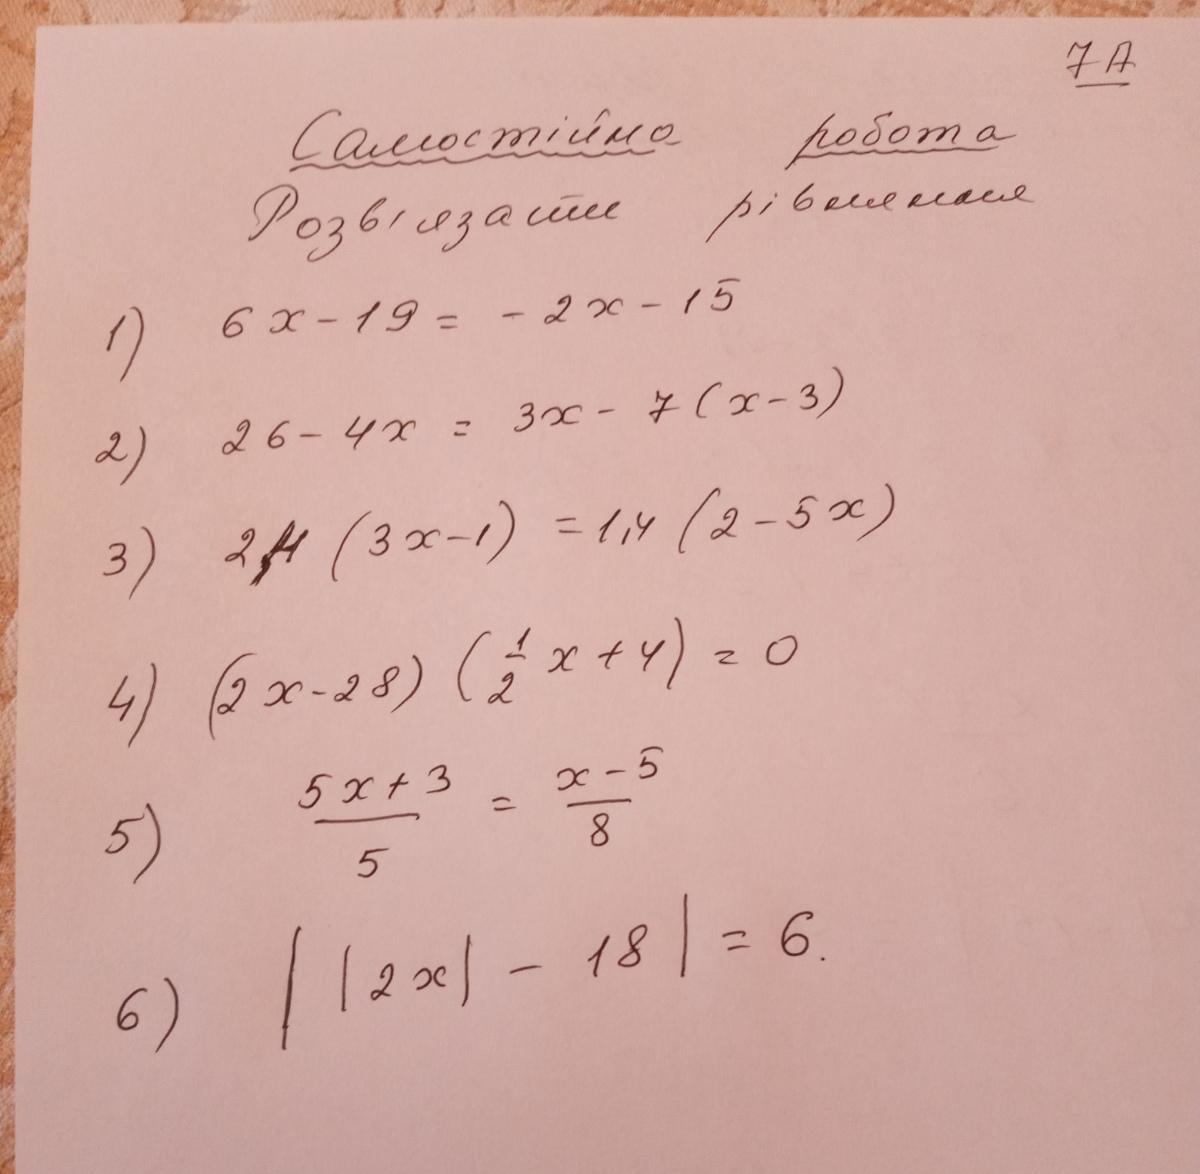 7А
Самостійна робота
Розв'язати рівняння
1) 6x - 19 = - 2x - 15
2) 26 - 4x = 3x - 7(x - 3)
3) 2,4 (3x - 1) = 1,4 (2 - 5x)
4) (2x - 28) (1/2 x + 4) = 0
5) (5x + 3)/5 = (x - 5)/8
6) | |2x| - 18 | = 6.